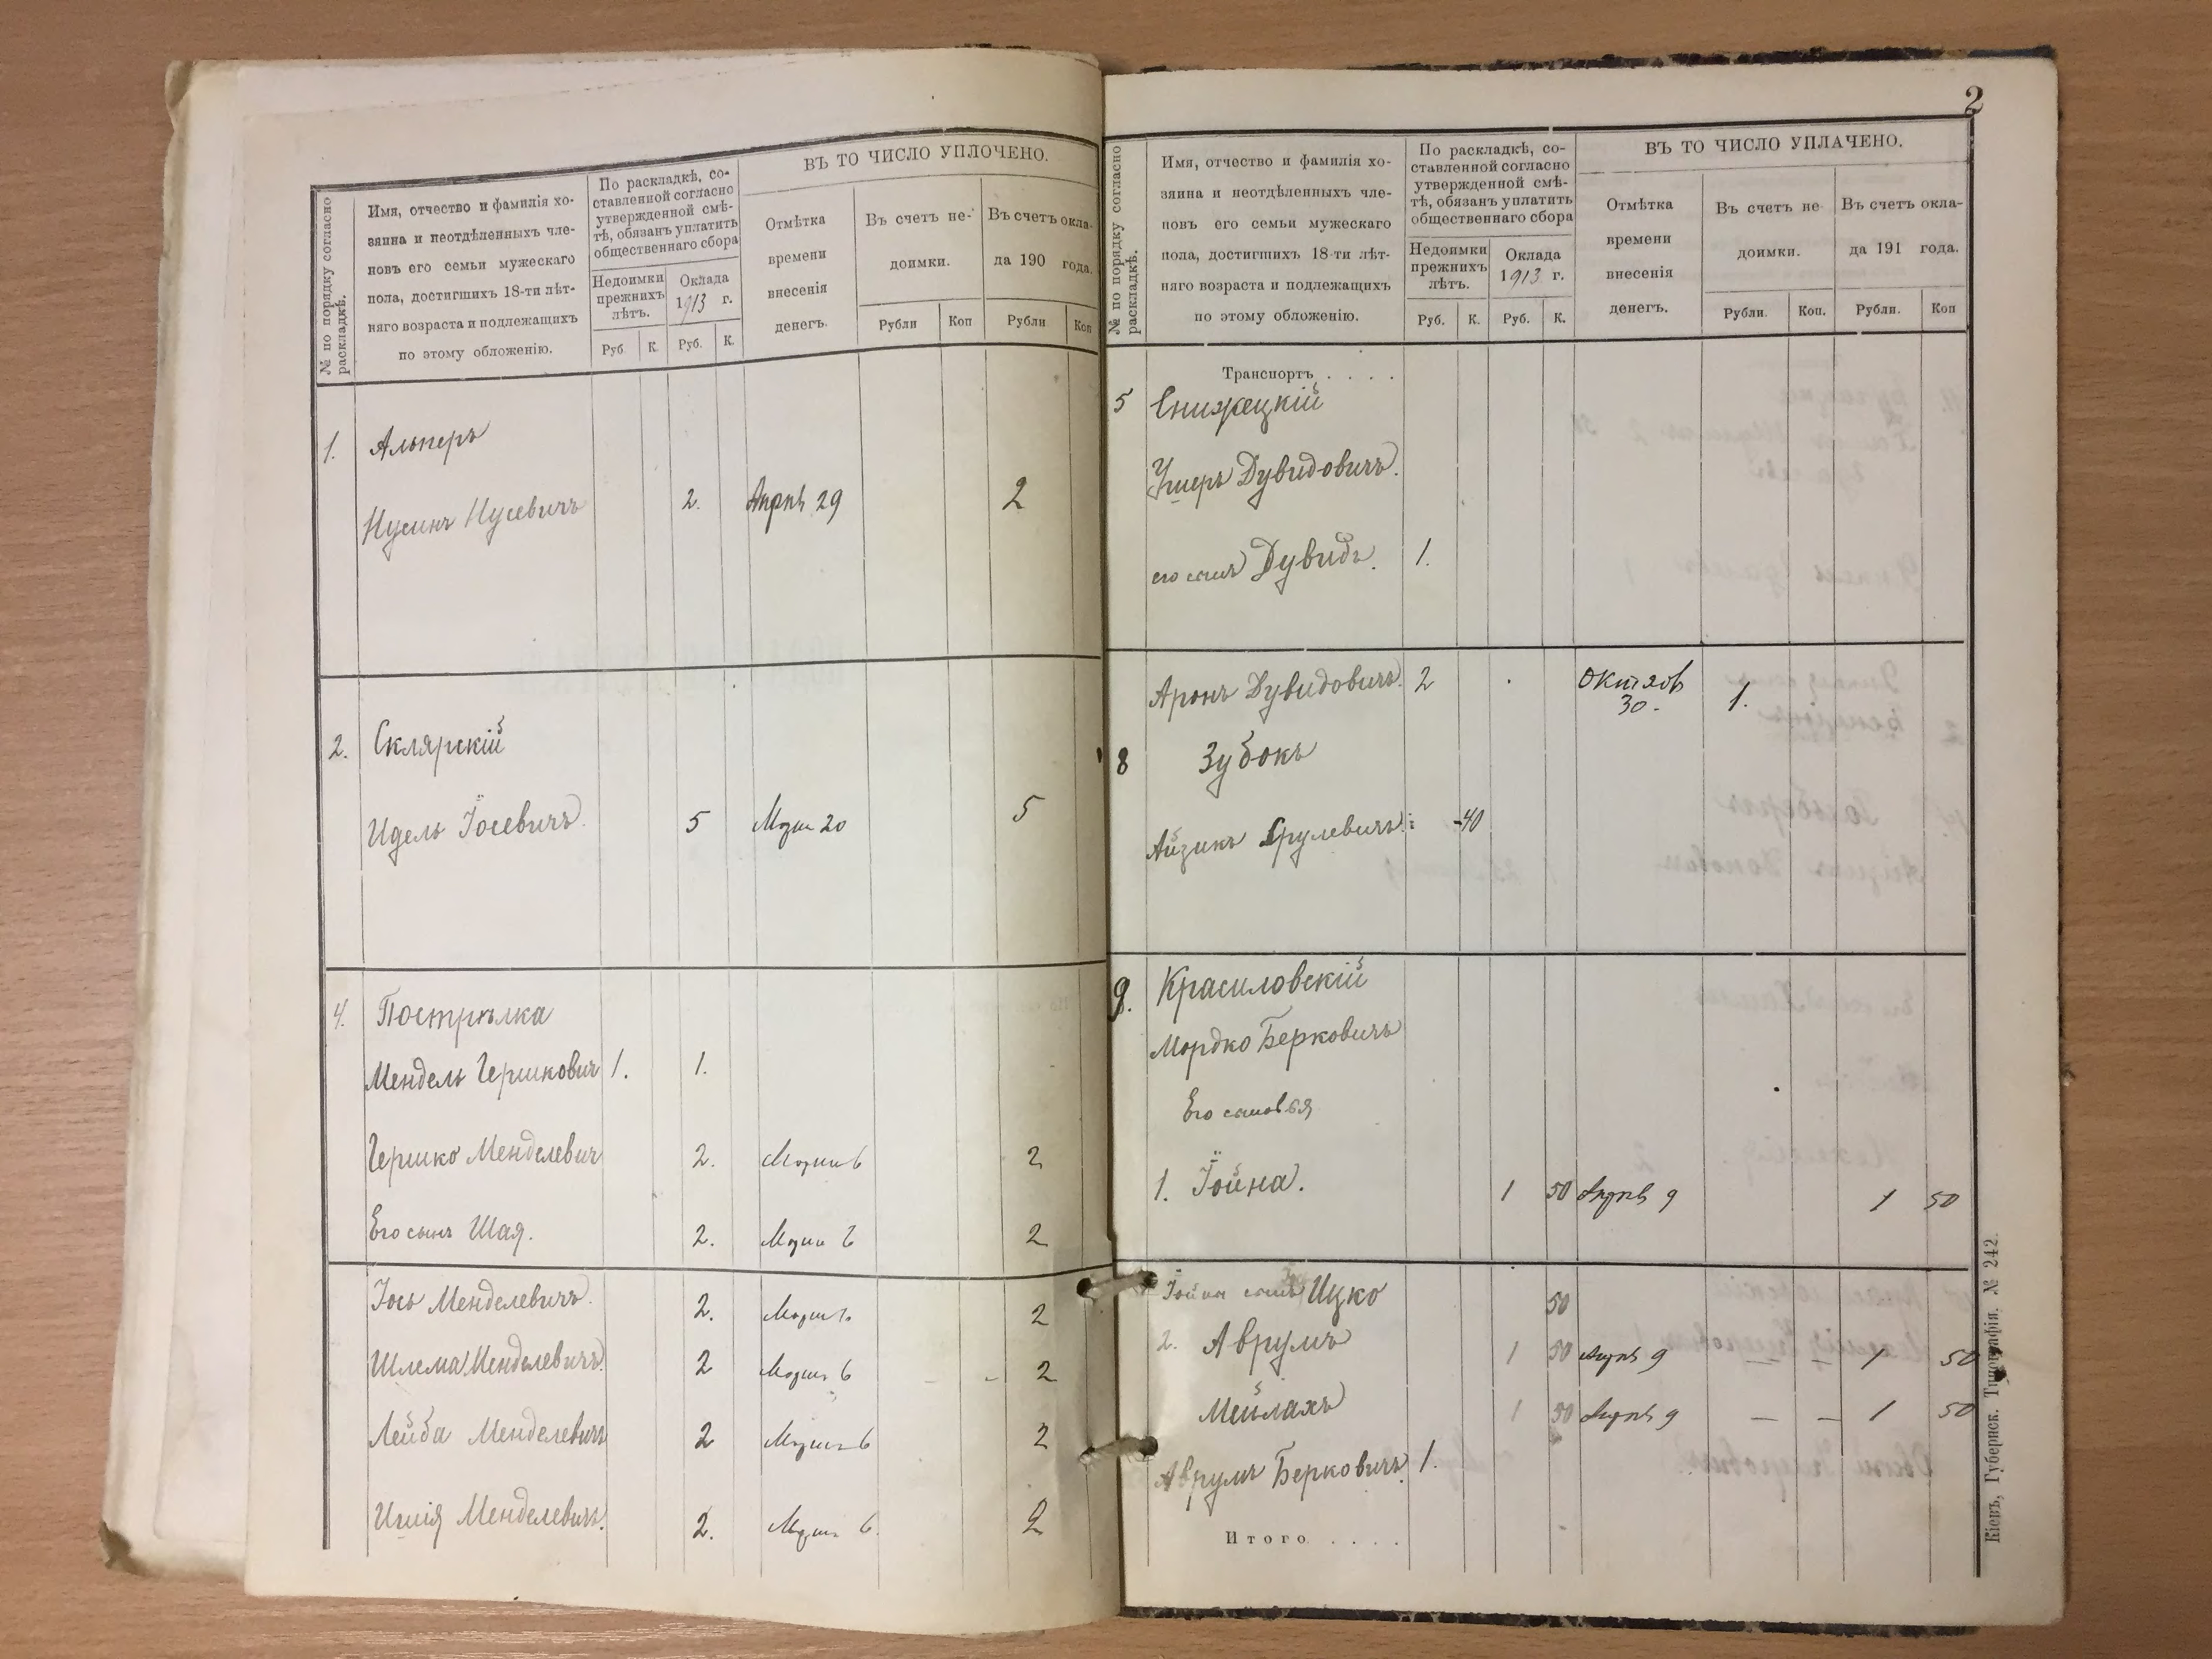 № по порядку согласно раскладкѣ.
Имя, отчество и фамилія хо-
зяина и неотдѣленныхъ чле-
новъ его семьи мужескаго
пола, достигшихъ 18-ти лѣт-
няго возраста и подлежащихъ
по этому обложенію.
По раскладкѣ, со-
ставленной согласно
утвержденной смѣ-
тѣ, обязанъ уплатить
общественнаго сбора
Недоимки
прежнихъ
лѣтъ.
Оклада
1913 г.
Руб К. Руб. К.
ВЪ ТО ЧИСЛО УПЛОЧЕНО.
Отмѣтка
времени
внесенія
денегъ.
Въ счетъ не-
доимки.
Въ счетъ окла-
да 190 года.
Рубли Коп Рубли Коп
1. Альперъ
Нусинъ Нусевичъ 2. Апрѣ 29 2
2. Склярскій
Идель Іосевичъ. 5 20 5
4. Пострѣлка
Мендель Гершковичъ 1. 1.
Гершко Менделевичъ 2. 6 2
Его сынъ Шая. 2. 6 2
Іось Менделевичъ. 2. 2
Шлема Менделевичъ. 2 6 - - 2
Лейба Менделевичъ 2 6 2
Ишія Менделевичъ. 2. 6. 2
2
№ по порядку согласно раскладкѣ.
Имя, отчество и фамилія хо-
зяина и неотдѣленныхъ чле-
новъ его семьи мужескаго
пола, достигшихъ 18-ти лѣт-
няго возраста и подлежащихъ
по этому обложенію.
По раскладкѣ, со-
ставленной согласно
утвержденной смѣ-
тѣ, обязанъ уплатить
общественнаго сбора
Недоимки
прежнихъ
лѣтъ.
Оклада
1913 г.
Руб. К. Руб. К.
ВЪ ТО ЧИСЛО УПЛАЧЕНО.
Отмѣтка
времени
внесенія
денегъ.
Въ счетъ не
доимки.
Въ счетъ окла-
да 191 года.
Рубли. Коп. Рубли. Коп
Транспортъ . . . .
5 Снижецкій
Ушеръ Дувидовичъ.
его сынъ Дувидъ. 1.
Аронъ Дувидовичъ. 2 Октяов 30. 1.
8 Зубокъ
Айзикъ Срулевичъ. -40
9. Красиловскій
Мордко Берковичъ
Его сыновья
1. Іойна. 1 50 Апрѣ 9 1 50
Іойны сынъ Ицко 50
2. Аврумъ 1 50 Апрѣ 9 — — 1 50
Мейлахъ 1 50 Апрѣ 9 — — 1 50
Аврумъ Берковичъ. 1.
Итого . . . .
Кіевъ, Губернск. Типографія. № 242.